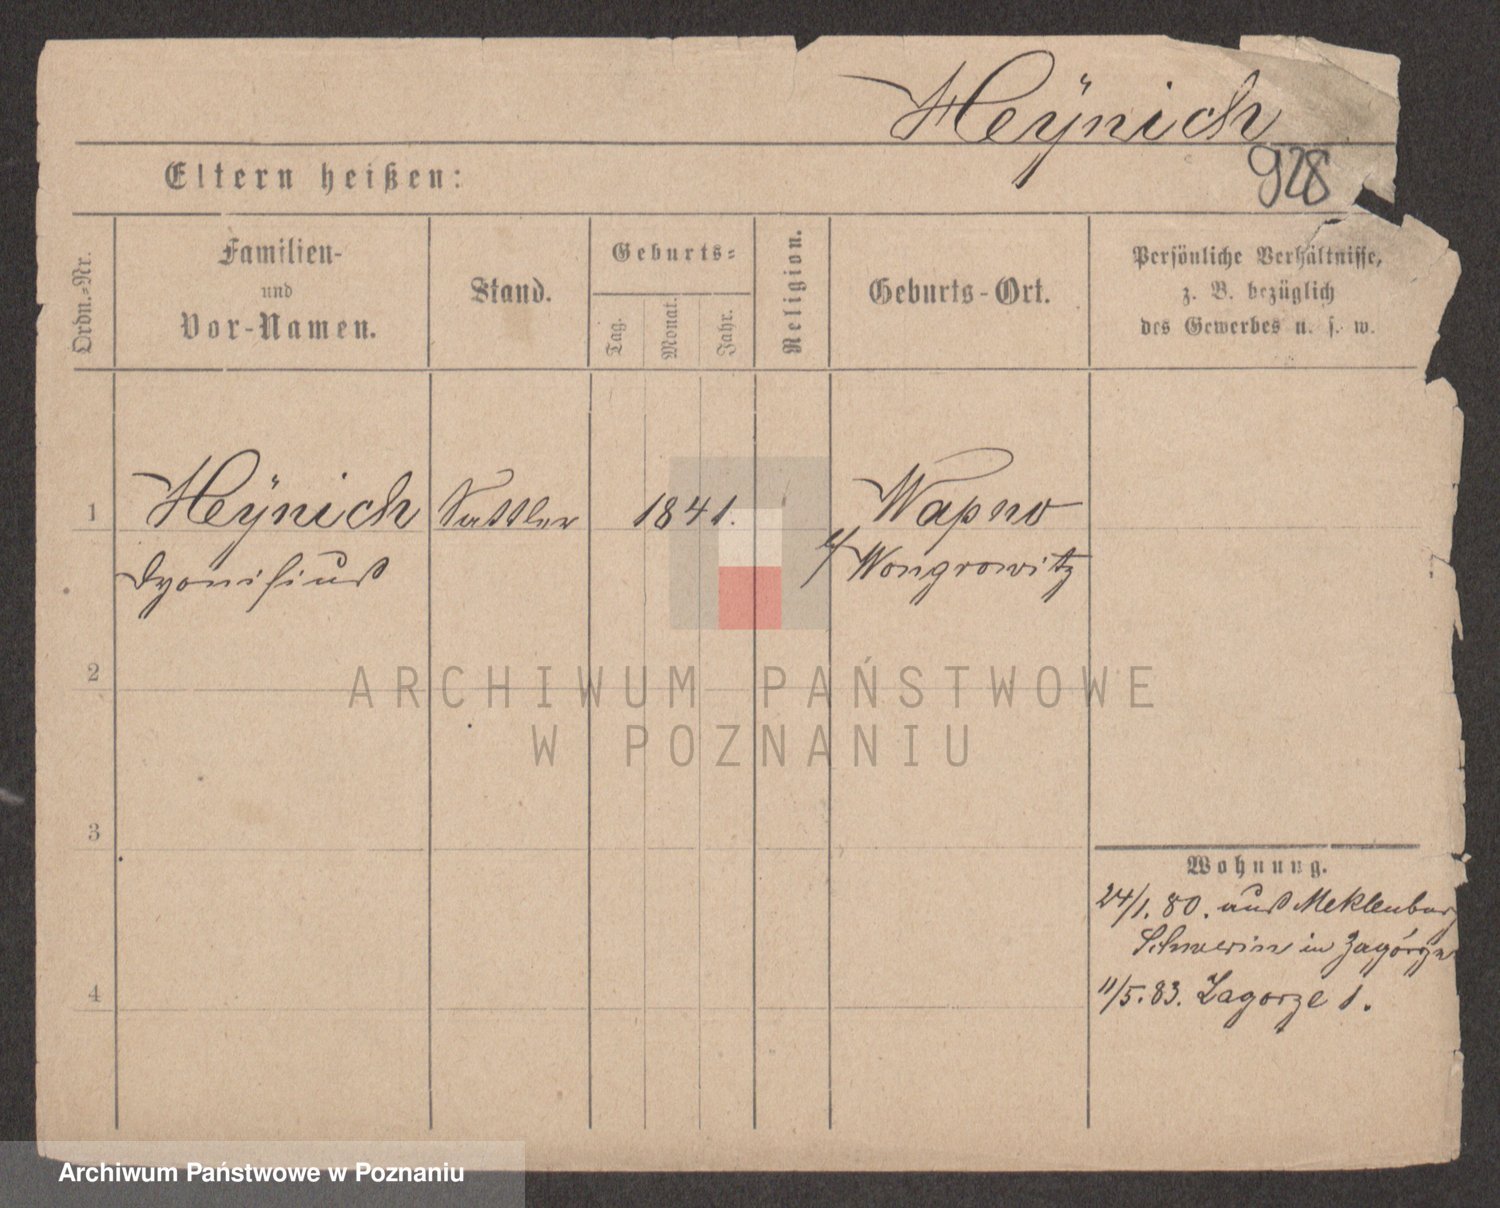 Heÿnich
928
Eltern heißen:
Ordn.-Nr.
Familien-
und
Vor-Namen.
Stand.
Geburts-
Tag.
Monat.
Jahr.
Religion.
Geburts-Ort.
Persönliche Verhältnisse,
z. B. bezüglich
des Gewerbes u. s. w.
1 Heÿnich Sattler 1841. Wapno
Dyonisius Wongrowitz
2
ARCHIWUM PAŃSTWOWE
W POZNANIU
3
Wohnung.
24/1. 80. aus Meklenburg
Schwerin in Zagórze
4
11/5. 83. Zagorze 1.
Archiwum Państwowe w Poznaniu